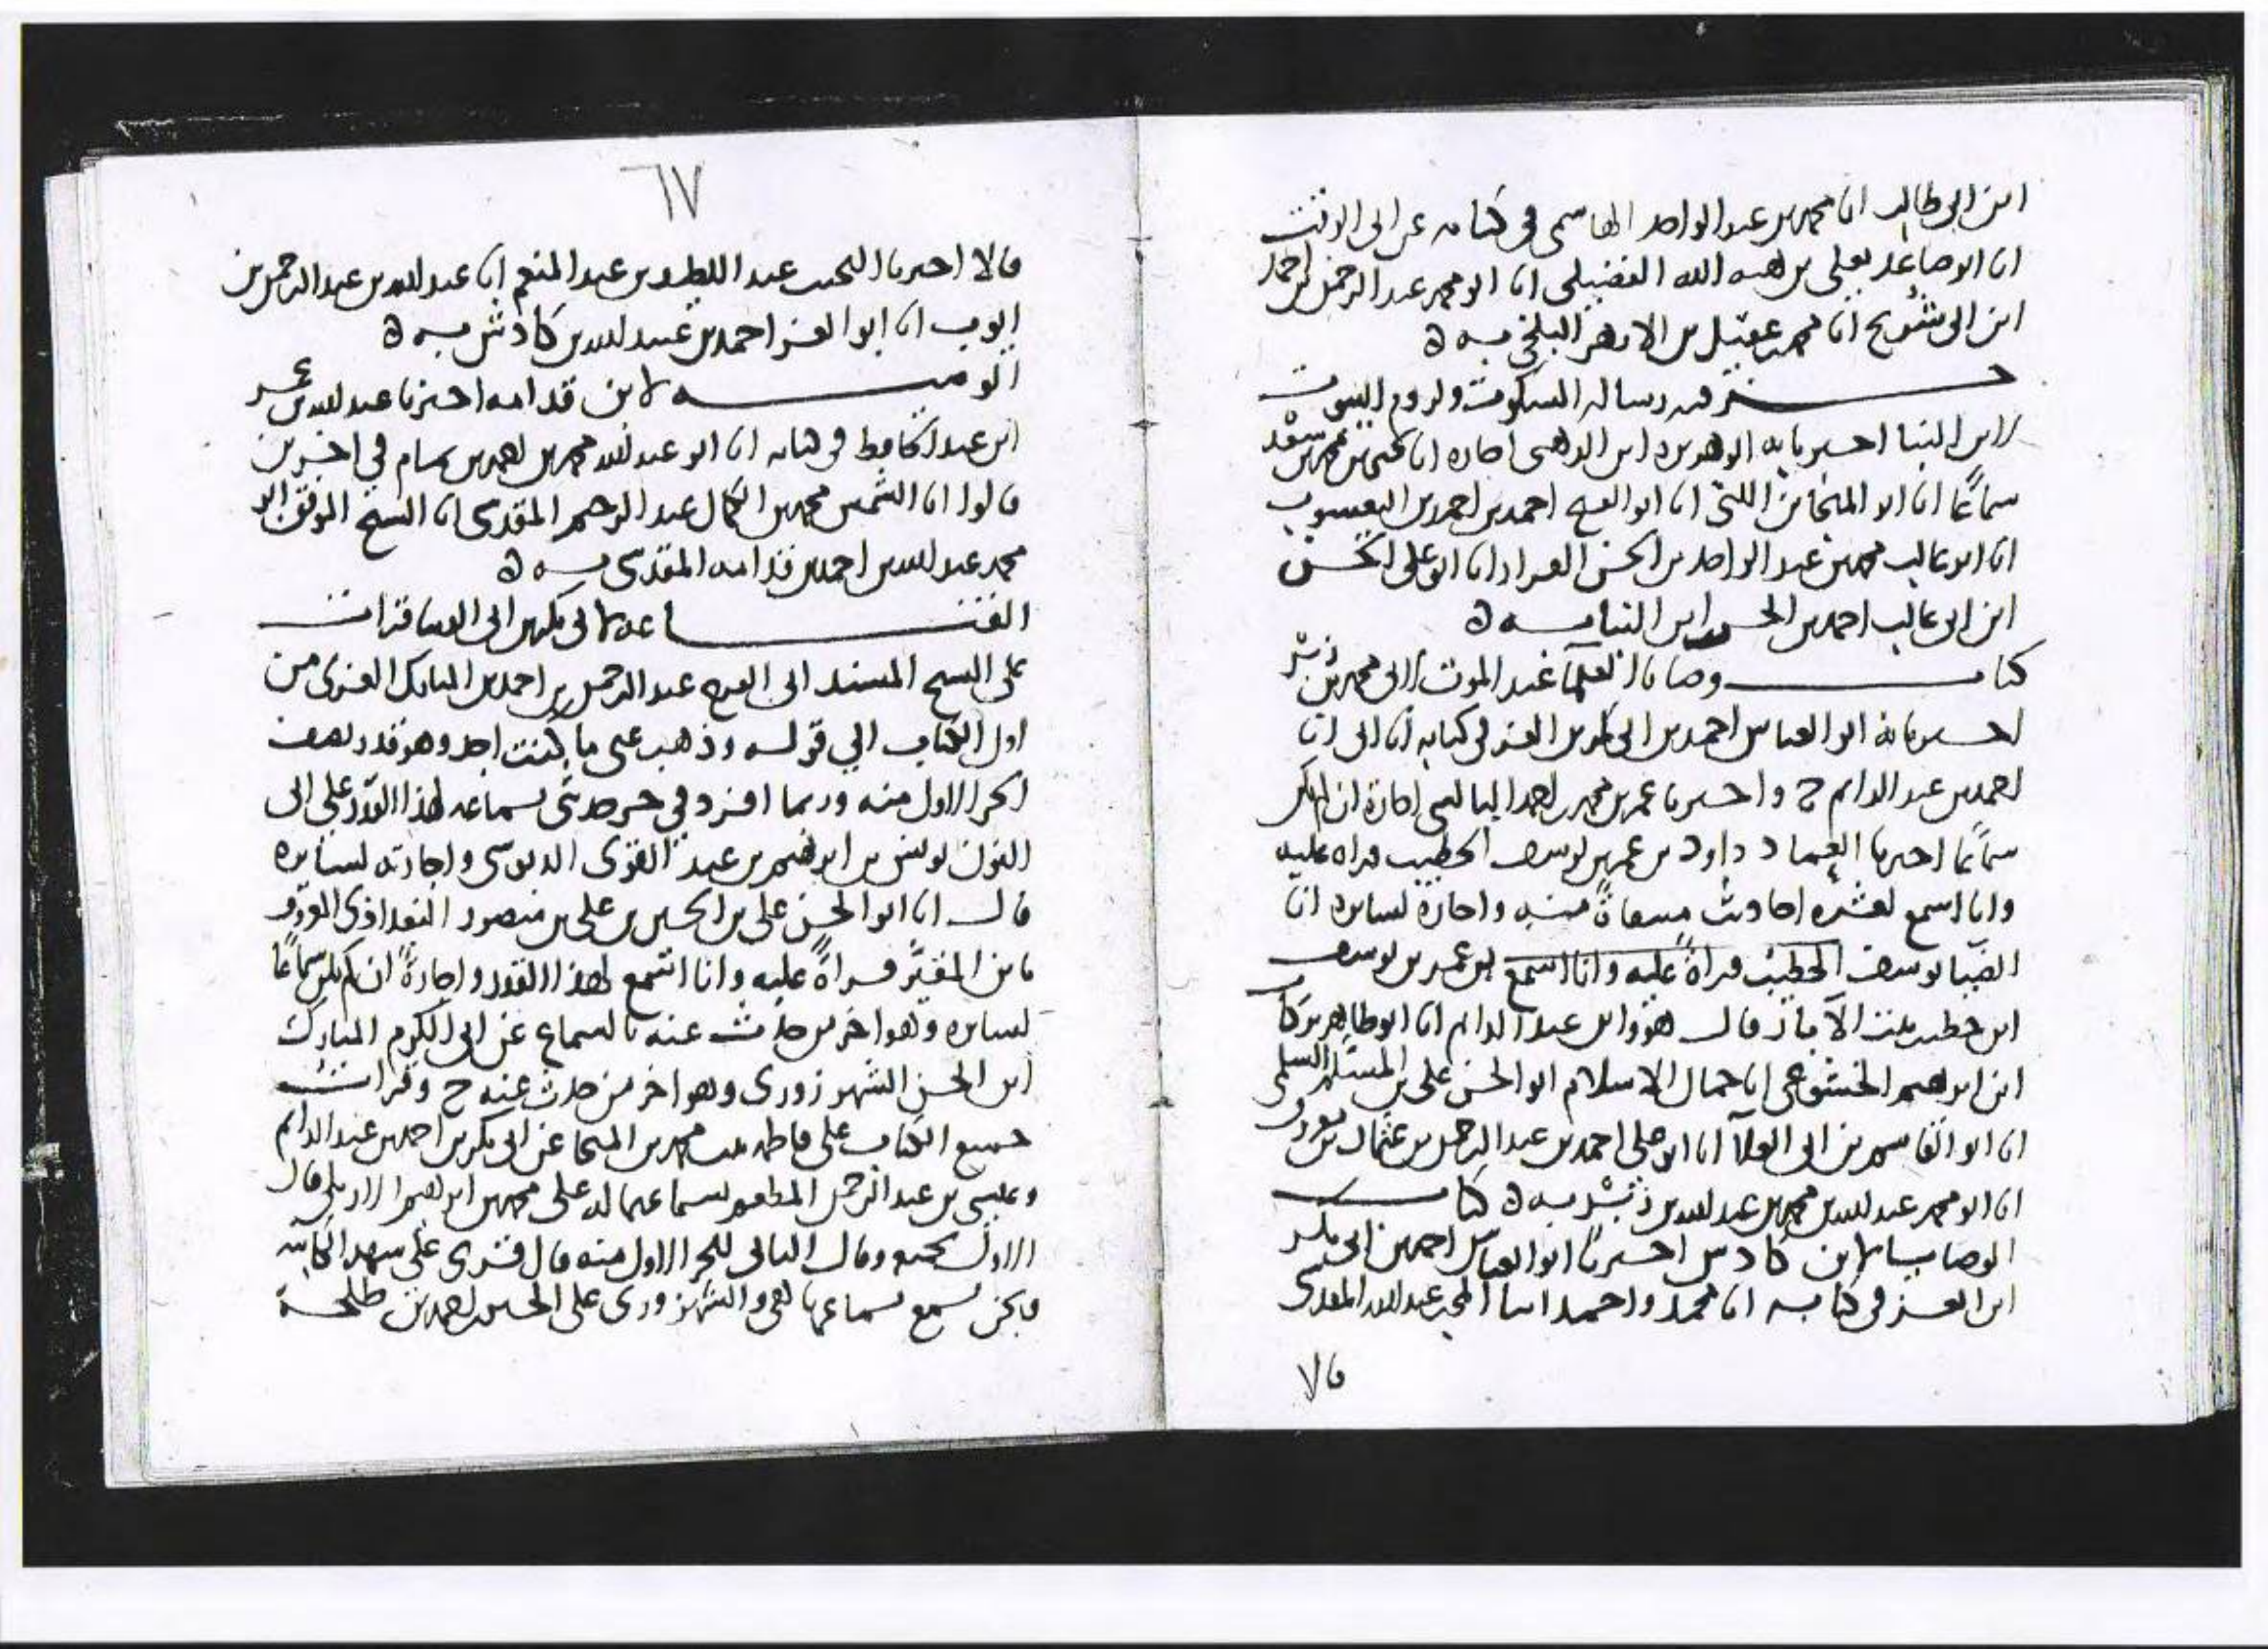 ابن ابي طالب انا محمد بن عبد الواحد الهاشمي في كتابه عن ابي الوقت
انا ابو صاعد يعلى بن هبه الله الفضيلي انا ابو محمد عبد الرحمن بن احمد
ابن ابي شريح انا محمد بن عقيل بن الازهر البلخي به ه
جزء فيه رساله السكوت ولزوم البيوت
لابن البنا اخبرنا به ابو هريره ابن الذهبي اجازه انا يحيى بن محمد بن سعد
سماعًا انا ابو المنجا بن اللتي انا ابو الفتح احمد بن احمد بن اليعسوب
انا ابو غالب محمد بن عبد الواحد بن الحسن القزاز انا ابو علي الحسن
ابن ابي غالب احمد بن الحسن ابن البنا به ه
كتاب وصايا العلما عند الموت لابي محمد بن زبر
اخبرنا به ابو العباس احمد بن ابي بكر بن العز في كتابه انا ابي انا
احمد بن عبد الدايم ح واخبرنا عمر بن محمد بن احمد البالسي اجازة ان لم يكن
سماعا اخبرنا العماد داود بن عمر بن يوسف الخطيب قراه عليه
وانا اسمع لعشره احاديث منتقاةً منه واجازة لسايره انا
الضيا يوسف الخطيب قراةً عليه وانا اسمع بن عمر بن يوسف
ابن خطيب بيت الآبار قال هو وابن عبد الدايم انا ابو طاهر بركات
ابن ابراهيم الخشوعي انا جمال الاسلام ابو الحسن علي بن المسلم السلمي
انا ابو القاسم بن ابي العلا انا ابو علي احمد بن عبد الرحمن بن عثمان بن معروف
انا ابو محمد عبد الله بن محمد بن عبد الله بن زبر به ه كتاب
الوصايا لابن كادش اخبرنا ابو العباس احمد بن ابي بكر
ابن العز في كتابه انا محمد واحمد ابنا المحب عبد الله المقدسي
قالا
٦٧
قالا اخبرنا النجيب عبد اللطيف بن عبد المنعم انا عبد الله بن عبد الرحمن بن
ايوب انا ابو العز احمد بن عبيد الله بن كادش به ه
الوصيه لابن قدامه اخبرنا عبد الله بن عمر
ابن عبد الحافظ في كتابه انا ابو عبد الله محمد بن احمد بن تمام في اخرين
قالوا انا الشمس محمد بن الكمال عبد الرحيم المقدسي انا الشيخ الموفق ابو
محمد عبد الله بن احمد بن قدامه المقدسي به ه
القناعه لابي بكر بن ابي الدنيا قرات
على الشيخ المسند ابي الفرج عبد الرحمن بن احمد بن المبارك الغزي من
اول الكتاب الي قوله وذهب عني ما كنت اجد وهو قدر نصف
الجزء الاول منه وربما افرد في جزء حدثني بسماعه لهذا القدر علي ابي
النون يونس بن ابراهيم بن عبد القوي الدبوسي واجازته لسايره
قال انا ابو الحسن علي بن الحسين بن علي بن منصور البغداذي المعروف
بابن المقيَّر قراةً عليه وانا اسمع لهذا القدر واجازةً ان لم يكن سماعًا
لسايره وهو اخر من حدث عنه بالسماع عن ابي الكرم المبارك
ابن الحسن الشهرزوري وهو اخر من حدث عنه ح وقرات
جميع الكتاب على فاطمه بنت محمد بن المنجا عن ابي بكر بن احمد بن عبد الدايم
وعيسى بن عبد الرحمن المطعم بسماعهما له على محمد بن ابراهيم الاربلي قال
الاول بجميعه وقال الثاني للجزء الاول منه قال قري على شهده الكاتبه
ونحن نسمع بسماعها هي والشهرزوري على الحسين بن احمد بن طلحة